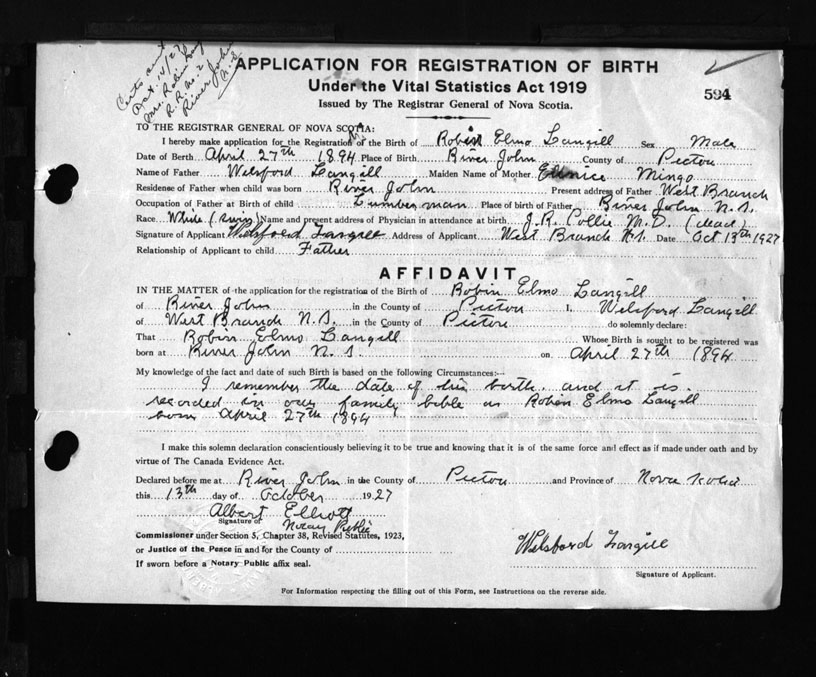 Certs sent
Oct 14/27
Mrs. Robin Lang
R.R. No. 2
River John
N.S.
APPLICATION FOR REGISTRATION OF BIRTH
Under the Vital Statistics Act 1919
594
Issued by The Registrar General of Nova Scotia.
TO THE REGISTRAR GENERAL OF NOVA SCOTIA:
I hereby make application for the Registration of the Birth of Robin Elmo Langill Sex Male
Date of Birth April 27th 1894 Place of Birth River John County of Pictou
Name of Father Welsford Langill Maiden Name of Mother Eunice Mingo
Residense of Father when child was born River John Present address of Father West Branch
Occupation of Father at Birth of child Lumberman Place of birth of Father River John N.S.
Race White (Swiss) Name and present address of Physician in attendance at birth J. R. Collie M.D. (dead)
Signature of Applicant Welsford Langill Address of Applicant West Branch N.S. Date Oct 13th 1927
Relationship of Applicant to child Father
AFFIDAVIT
IN THE MATTER of the application for the registration of the Birth of Robin Elmo Langill
of River John in the County of Pictou I, Welsford Langill
of West Branch N.S. in the County of Pictou do solemnly declare:
That Robin Elmo Langill Whose Birth is sought to be registered was
born at River John N.S. on April 27th 1894
My knowledge of the fact and date of such Birth is based on the following Circumstances:—
I remember the date of his birth and it is
recorded in our family bible as Robin Elmo Langill
born April 27th 1894
I make this solemn declaration conscientiously believing it to be true and knowing that it is of the same force and effect as if made under oath and by
virtue of The Canada Evidence Act.
Declared before me at River John in the County of Pictou and Province of Nova Scotia
this 13th day of October 1927
Albert Elliott
Signature of Notary Public
Commissioner under Section 5, Chapter 38, Revised Statutes, 1923,
or Justice of the Peace in and for the County of
If sworn before a Notary Public affix seal.
Welsford Langill
Signature of Applicant.
For Information respecting the filling out of this Form, see Instructions on the reverse side.